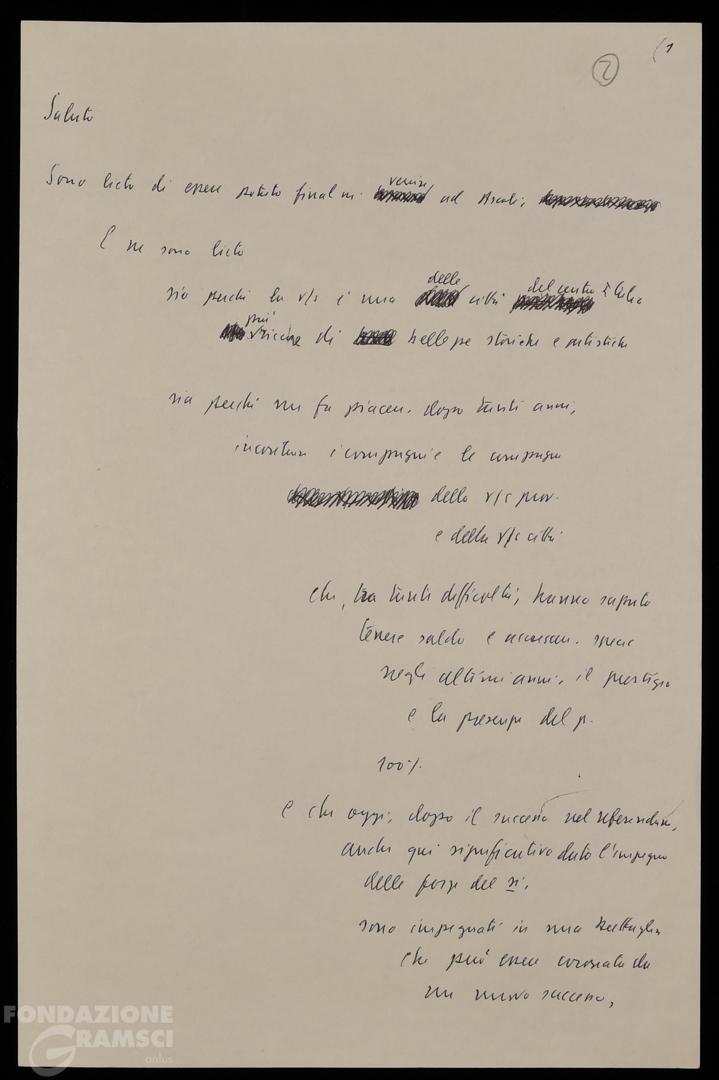 (1
2
Saluto
Sono lieto di essere potuto finalm. venire ad Ascoli,
E ne sono lieto
sia perché la v/s è una delle città del centro Italia
più ricche di bellezze storiche e artistiche
sia perché mi fa piacere, dopo tanti anni,
incontrare i compagni e le compagne
della v/s prov.
e della v/s città
che, tra tante difficoltà, hanno saputo
tenere saldo e accrescere. specie
negli ultimi anni, il prestigio
e la presenza del p.
100%.
e che oggi, dopo il successo nel referendum,
anche qui significativo dato l'impegno
delle forze del sì,
sono impegnati in una battaglia
che può essere coronata da
un nuovo successo,
FONDAZIONE
GRAMSCI
onlus